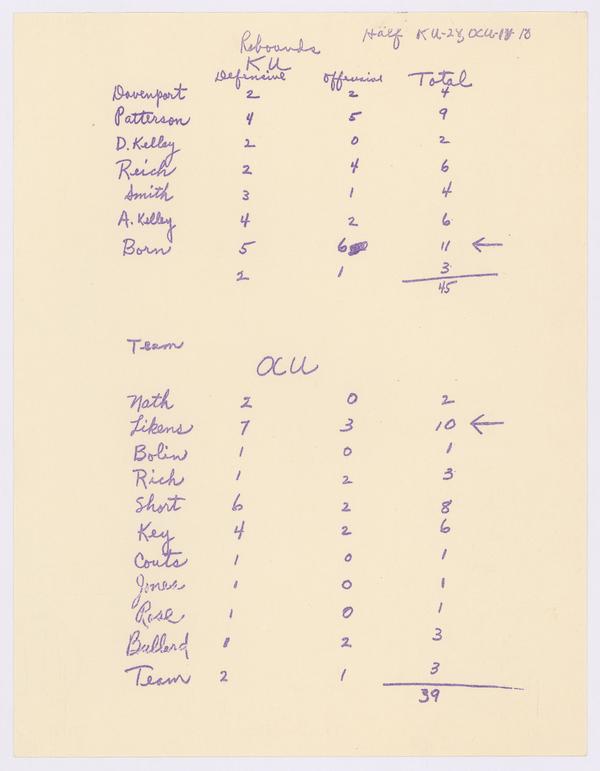 Half KU-28, OCU-18 18
Rebounds
KU
Defensive Offensive Total
Davenport 2 2 4
Patterson 4 5 9
D. Kelley 2 0 2
Reich 2 4 6
Smith 3 1 4
A. Kelley 4 2 6
Born 5 6 11 ←
2 1 3
45
Team
OCU
Nath 2 0 2
Likens 7 3 10 ←
Bolin 1 0 1
Rich 1 2 3
Short 6 2 8
Key 4 2 6
Couts 1 0 1
Jones 1 0 1
Rose 1 0 1
Bullard 1 2 3
Team 2 1 3
39